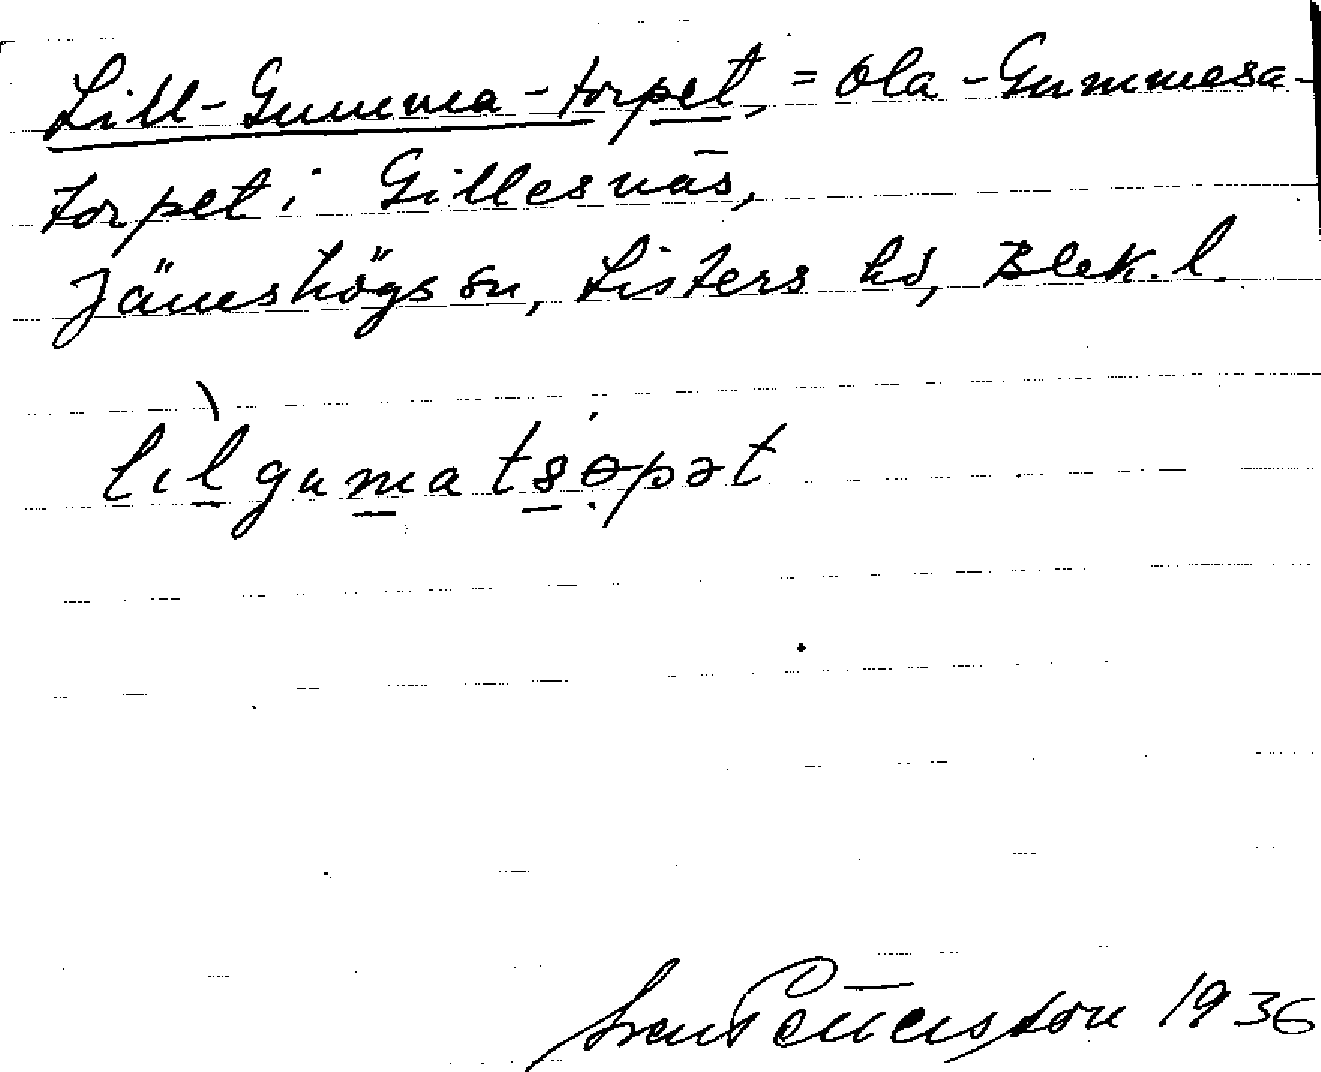 Lill-Gumma-torpet, = Ola-Gummesa-
torpet i Gillesnäs,
Jämshögs sn, Listers hd, Blek. l.
lılgumatsɵpət
Sven Pettersson 1936